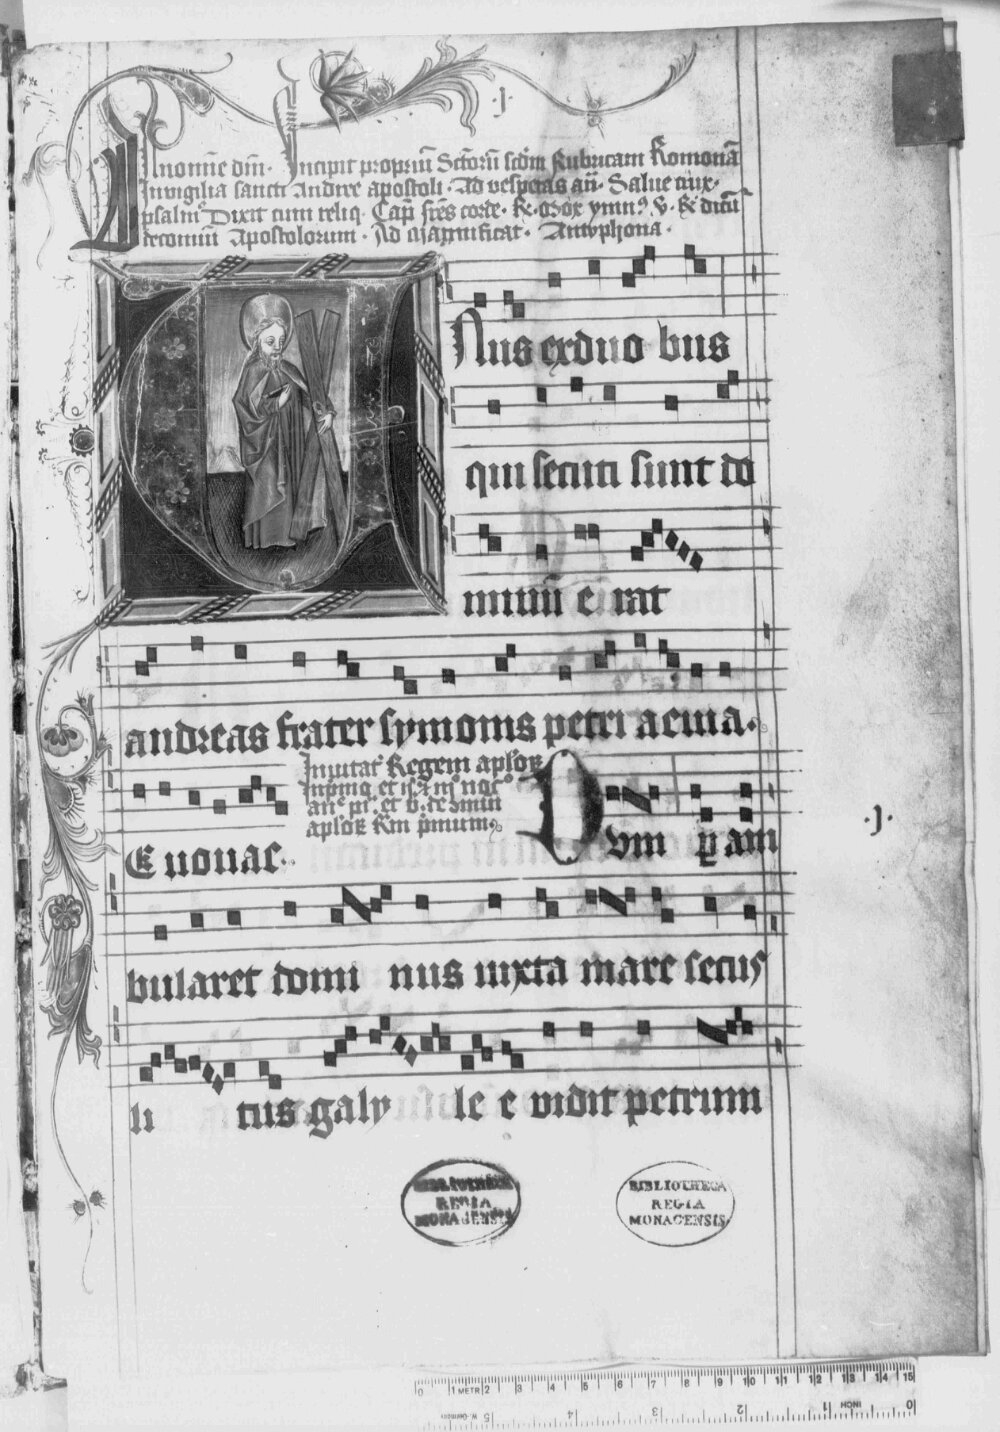 .j.
In nomīe dm̄. Incipit propriū Sctōrū scdm̄ Rubricam Romonā
In vigilia sancti Andree apostoli. Ad vesperas añ. Salue crux.
psalmꝰ Dixit cum reliq. Cap̄ frēs corde. R. Mox ymnꝰ V. & dicūt̄
decomūi Apostolorum. Ad Magnificat. Antyphona.
Unus ex duo bus
qui secuti sunt do
minū e rat
andreas frater symonis petri aeuia.
Inuitat̄ Regem apl̄oꝝ
apl̄oꝝ p̄mum.
E uouae.
Dum ꝑ am
bularet domi nus iuxta mare secus
li tus galy le e vidit petrum
.j.
BIBLIOTHECA
REGIA
MONACENSIS
BIBLIOTHECA
REGIA
MONACENSIS.
0 1 METR 2 3 4 5 6 7 8 9 10 11 12 13 14 15
0 1 INCH 2 3 4 5 W.-Germany